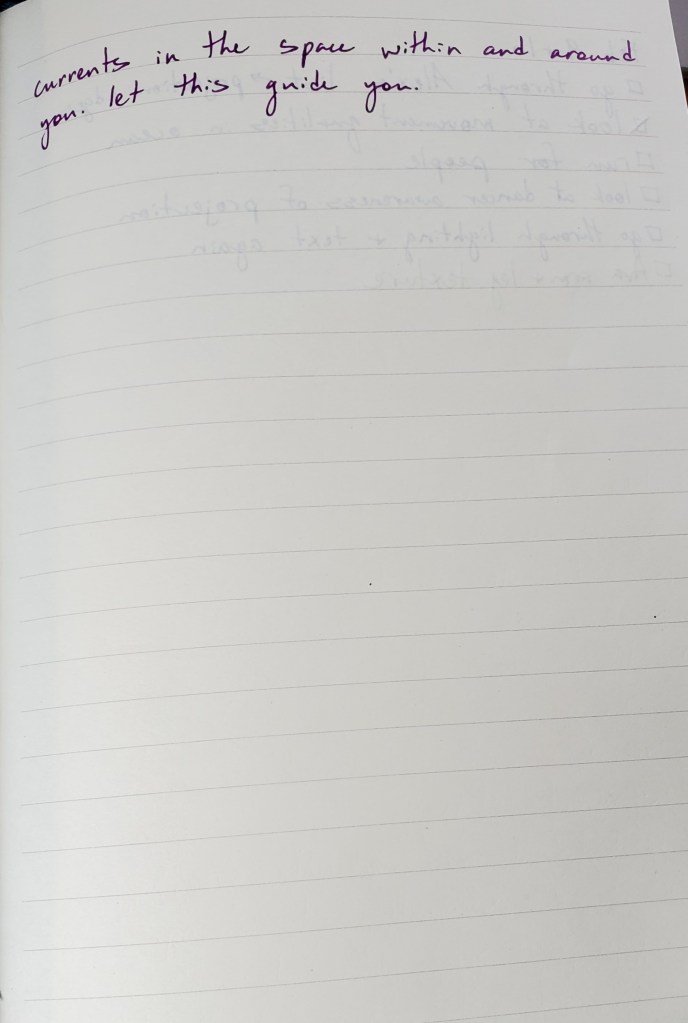 currents in the space within and around
you. let this guide you.